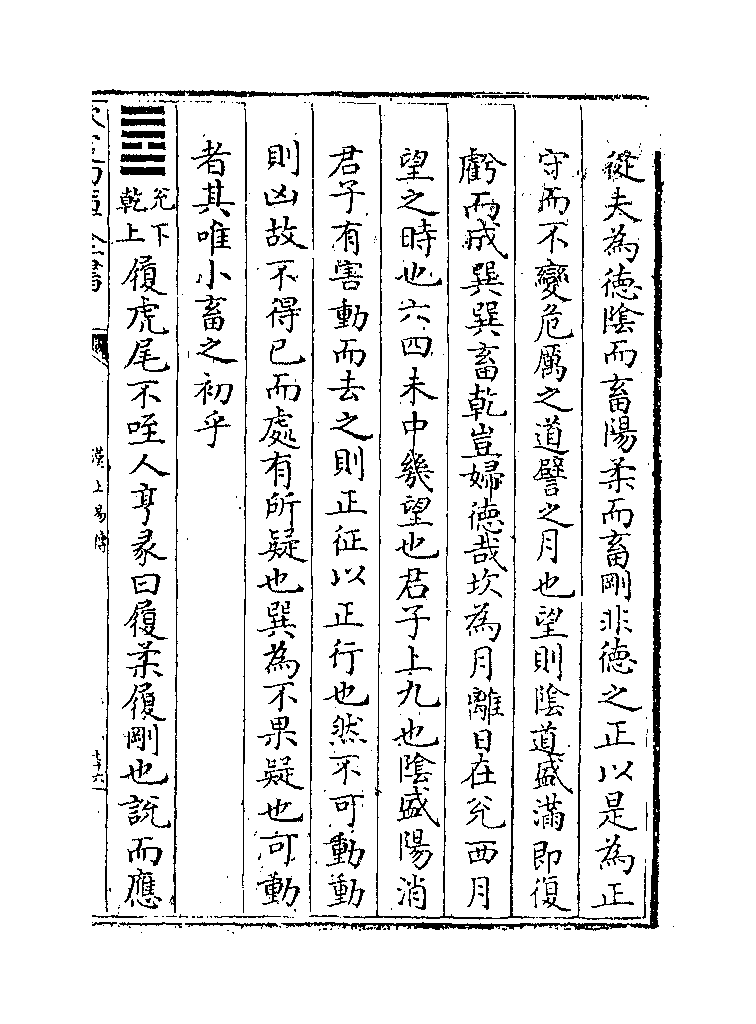 從夫為徳隂而畜陽柔而畜剛非徳之正以是為正
守而不變危厲之道譬之月也望則隂道盛滿即復
虧而成巽巽畜乾豈婦徳哉坎為月離日在兊西月
望之時也六四未中幾望也君子上九也隂盛陽消
君子有害動而去之則正征以正行也然不可動動
則凶故不得已而處有所疑也巽為不果疑也可動
者其唯小畜之初乎
䷉兊下乾上履虎尾不咥人亨彖曰履柔履剛也説而應
漢上易傳